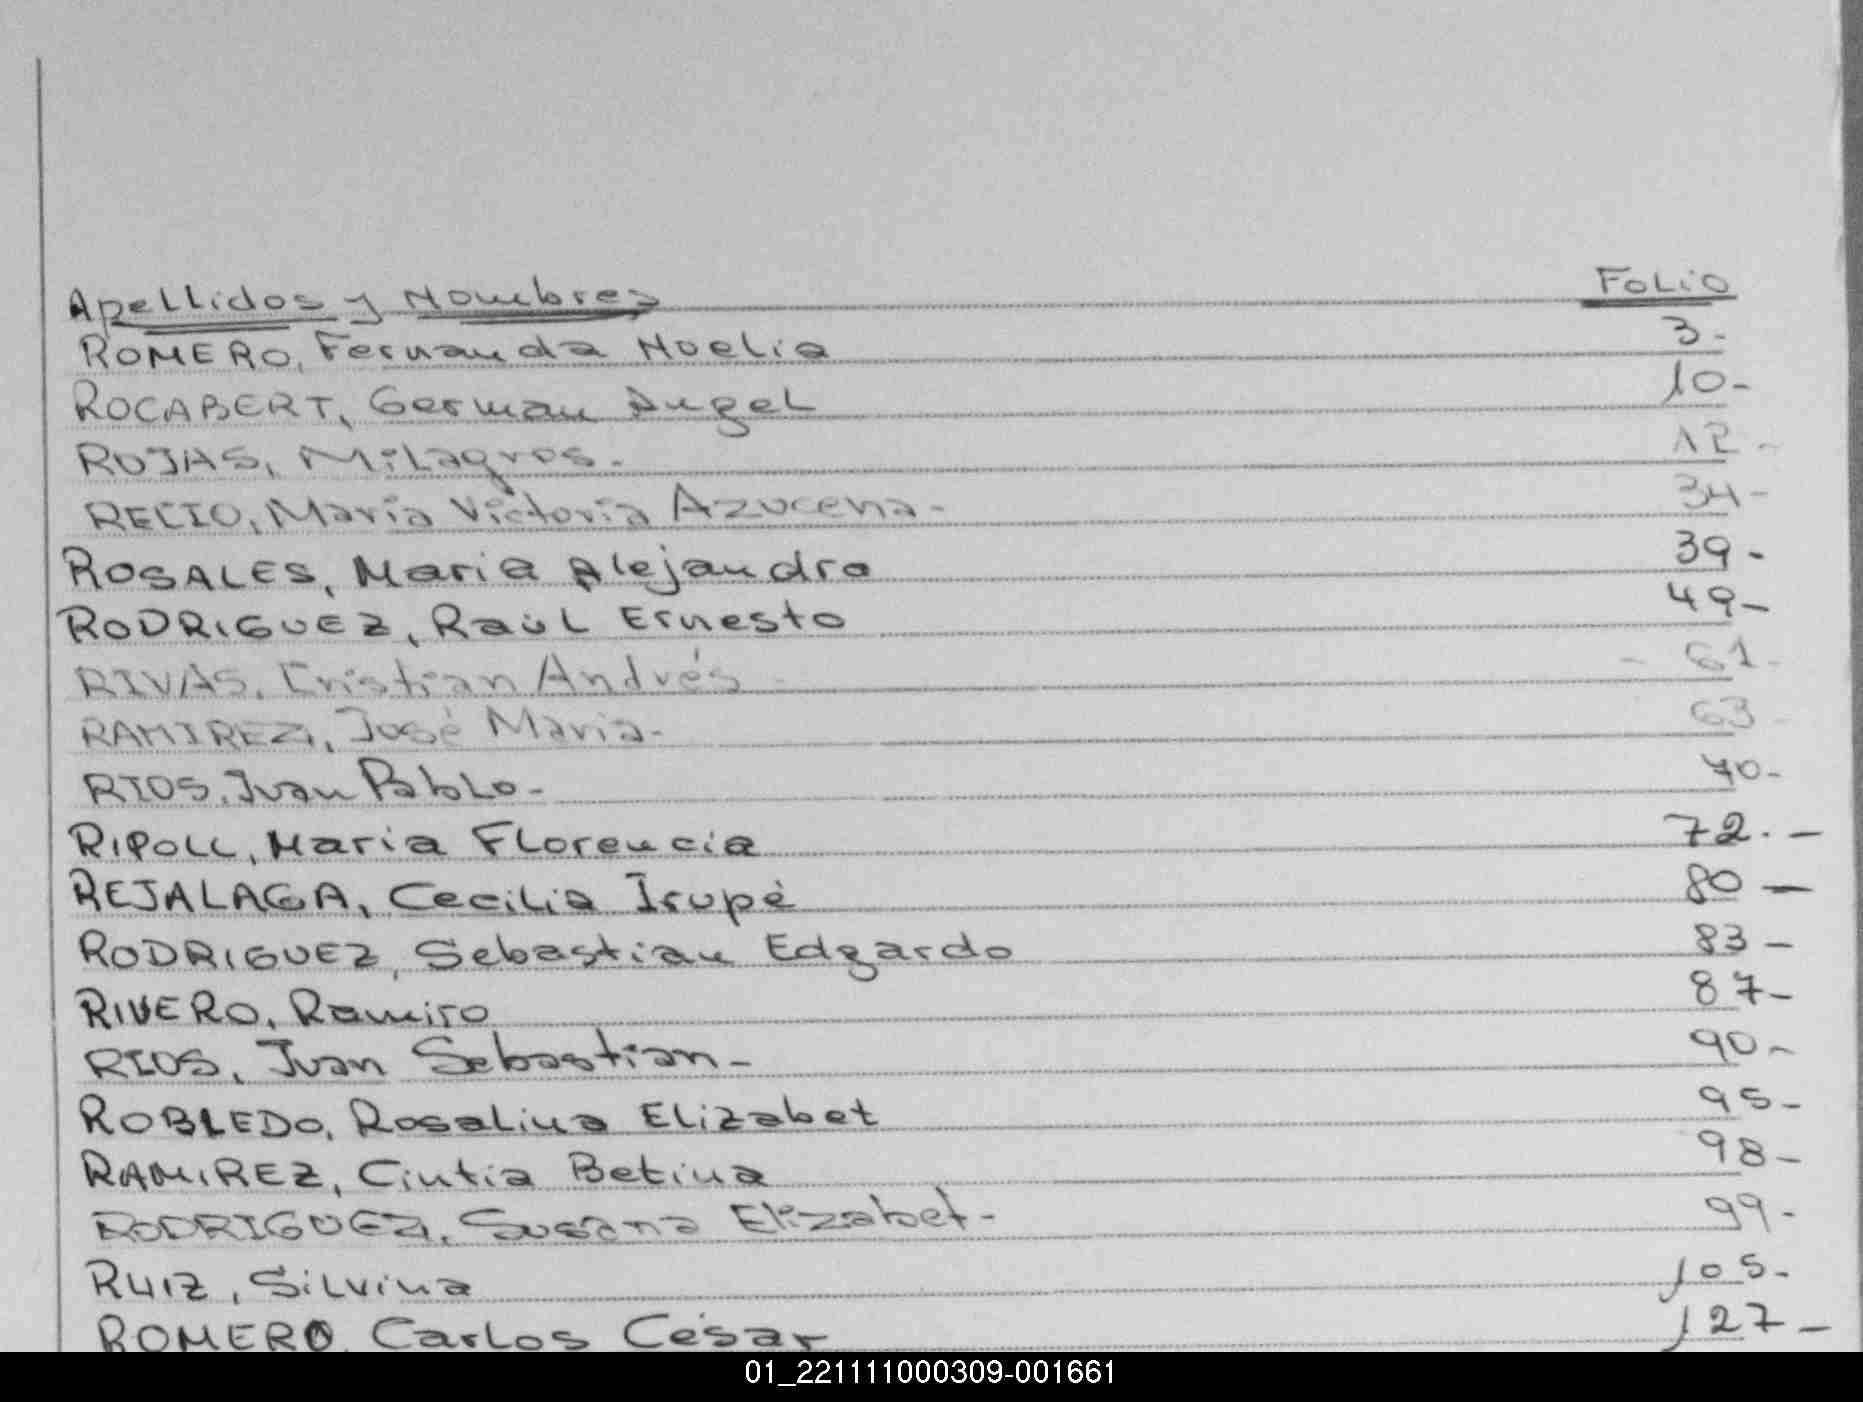 Apellidos y Nombres Folio
ROMERO, Fernanda Noelia 3-
ROCABERT, German Angel 10-
ROJAS, Milagros. 12-
RECIO, Maria Victoria Azucena- 34-
ROSALES, Maria Alejandra 39-
RODRIGUEZ, Raúl Ernesto 49-
RIVAS, Cristian Andrés - 61-
RAMIREZ, José Maria- 63-
RIOS, Juan Pablo- 70-
RIPOLL, Maria Florencia 72.-
REJALAGA, Cecilia Irupé 80-
RODRIGUEZ, Sebastian Edgardo 83-
RIVERO, Ramiro 87-
RIOS, Juan Sebastian- 90-
ROBLEDO, Rosalina Elizabet 95-
RAMIREZ, Cintia Betina 98-
RODRIGUEZ, Susana Elizabet- 99-
RUIZ, Silvina 105-
ROMERO, Carlos César 127-
01_221111000309-001661